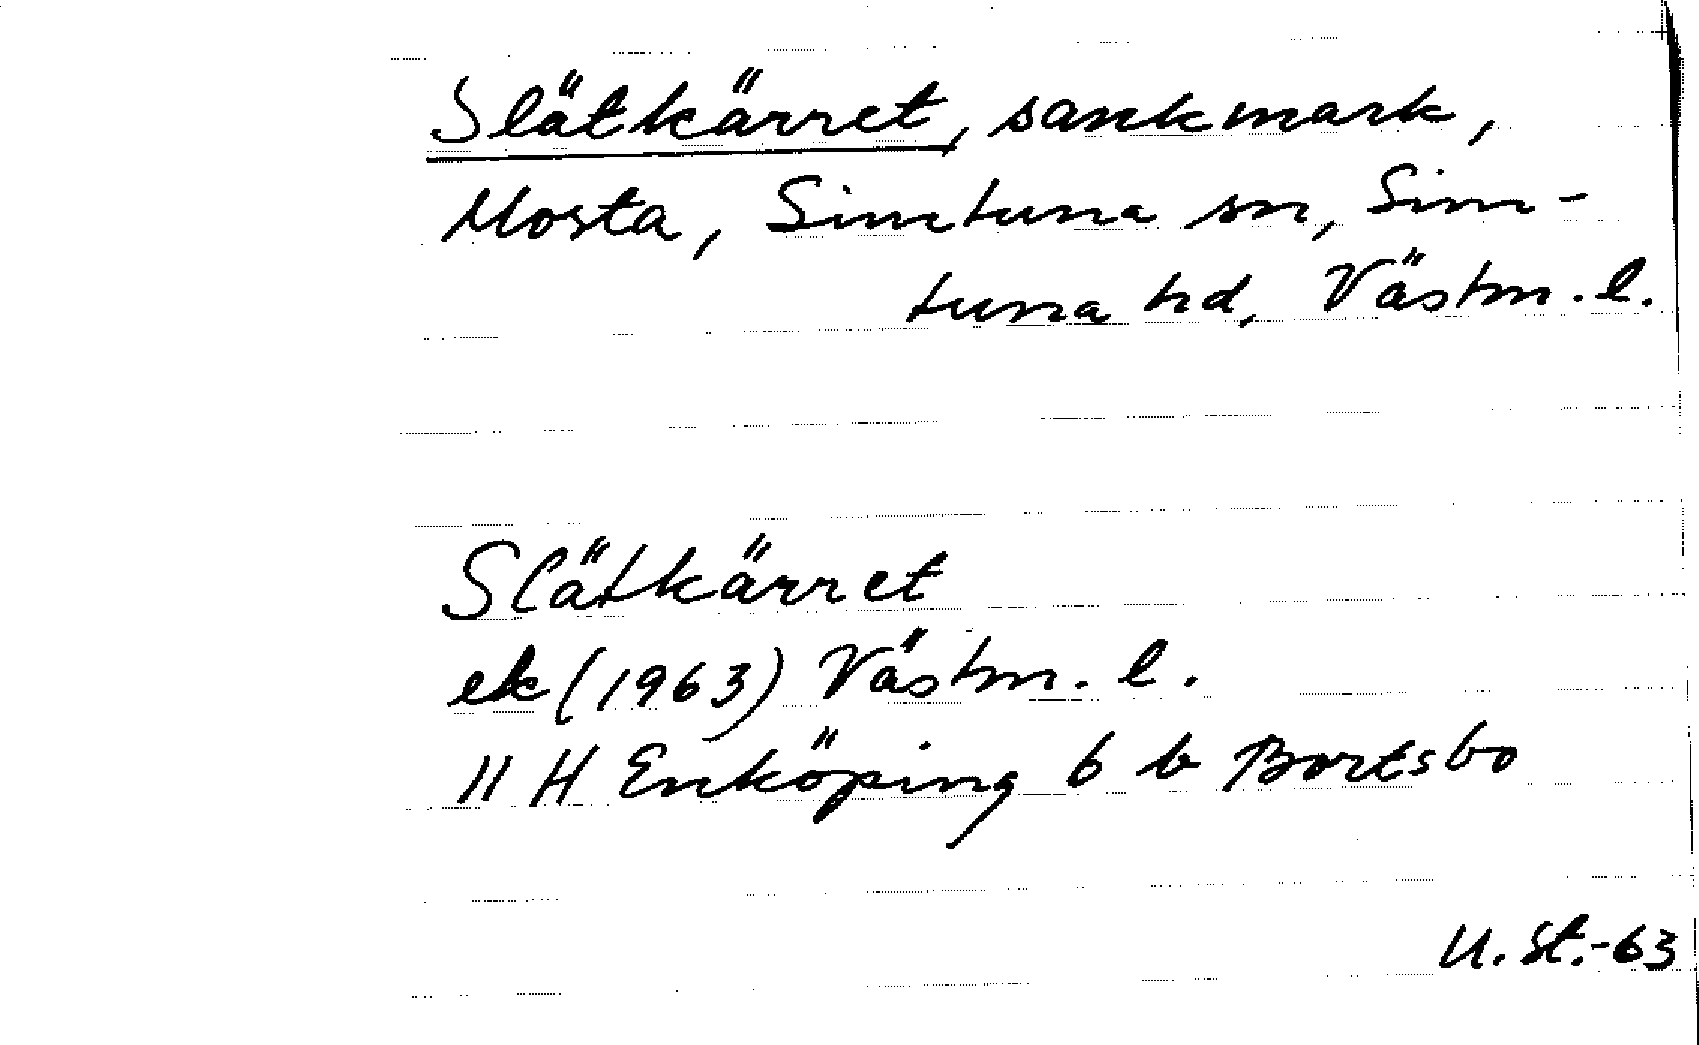 Slätkärret, sankmark,
Mosta, Simtuna sn, Sim-
tuna hd, Västm. l.
Slätkärret
ek (1963) Västm. l.
11 H Enköping 6 b Bortsbo
U. St.-63